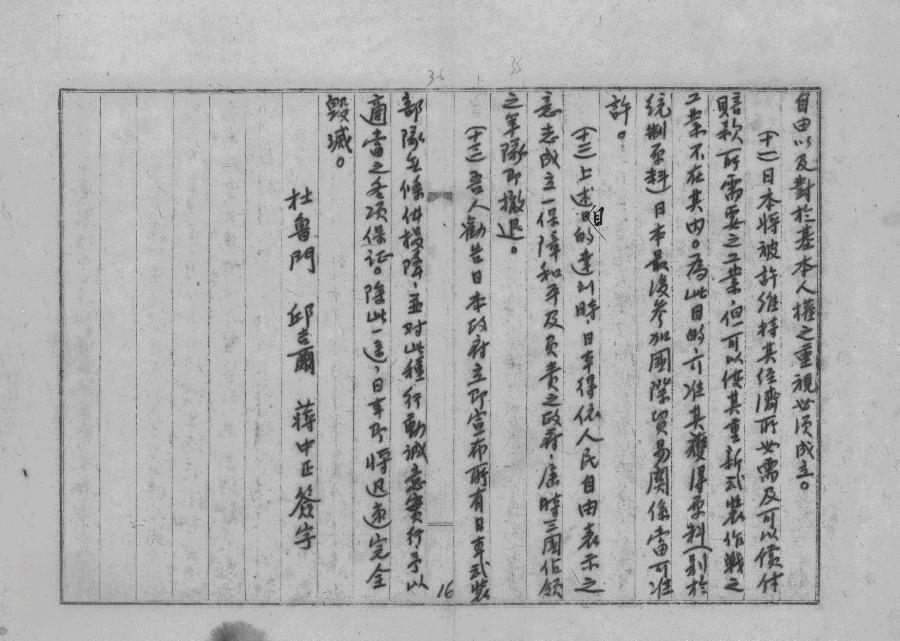 自由以及對於基本人權之重視必須成立。
(十一)日本將被許維持其經濟所必需及可以償付
賠款所需要之工業,但可以使其重新武裝作戰之
工業不在其內。為此目的,可准其獲得原料(別於
統制原料)日本最後參加國際貿易關係當可准
許。
(十二)上述目的達到時,日本得依人民自由表示之
意志成立一保障和平及負責之政府,屆時三國佔領
之軍隊即撤退。
(十三)吾人勸告日本政府立即宣布所有日本武裝
部隊無條件投降,並对此種行動誠意實行予以
適當之各項保証。除此一途,日本即將迅速完全
毀滅。
杜魯門 邱吉爾 蔣中正簽字
16
36
35